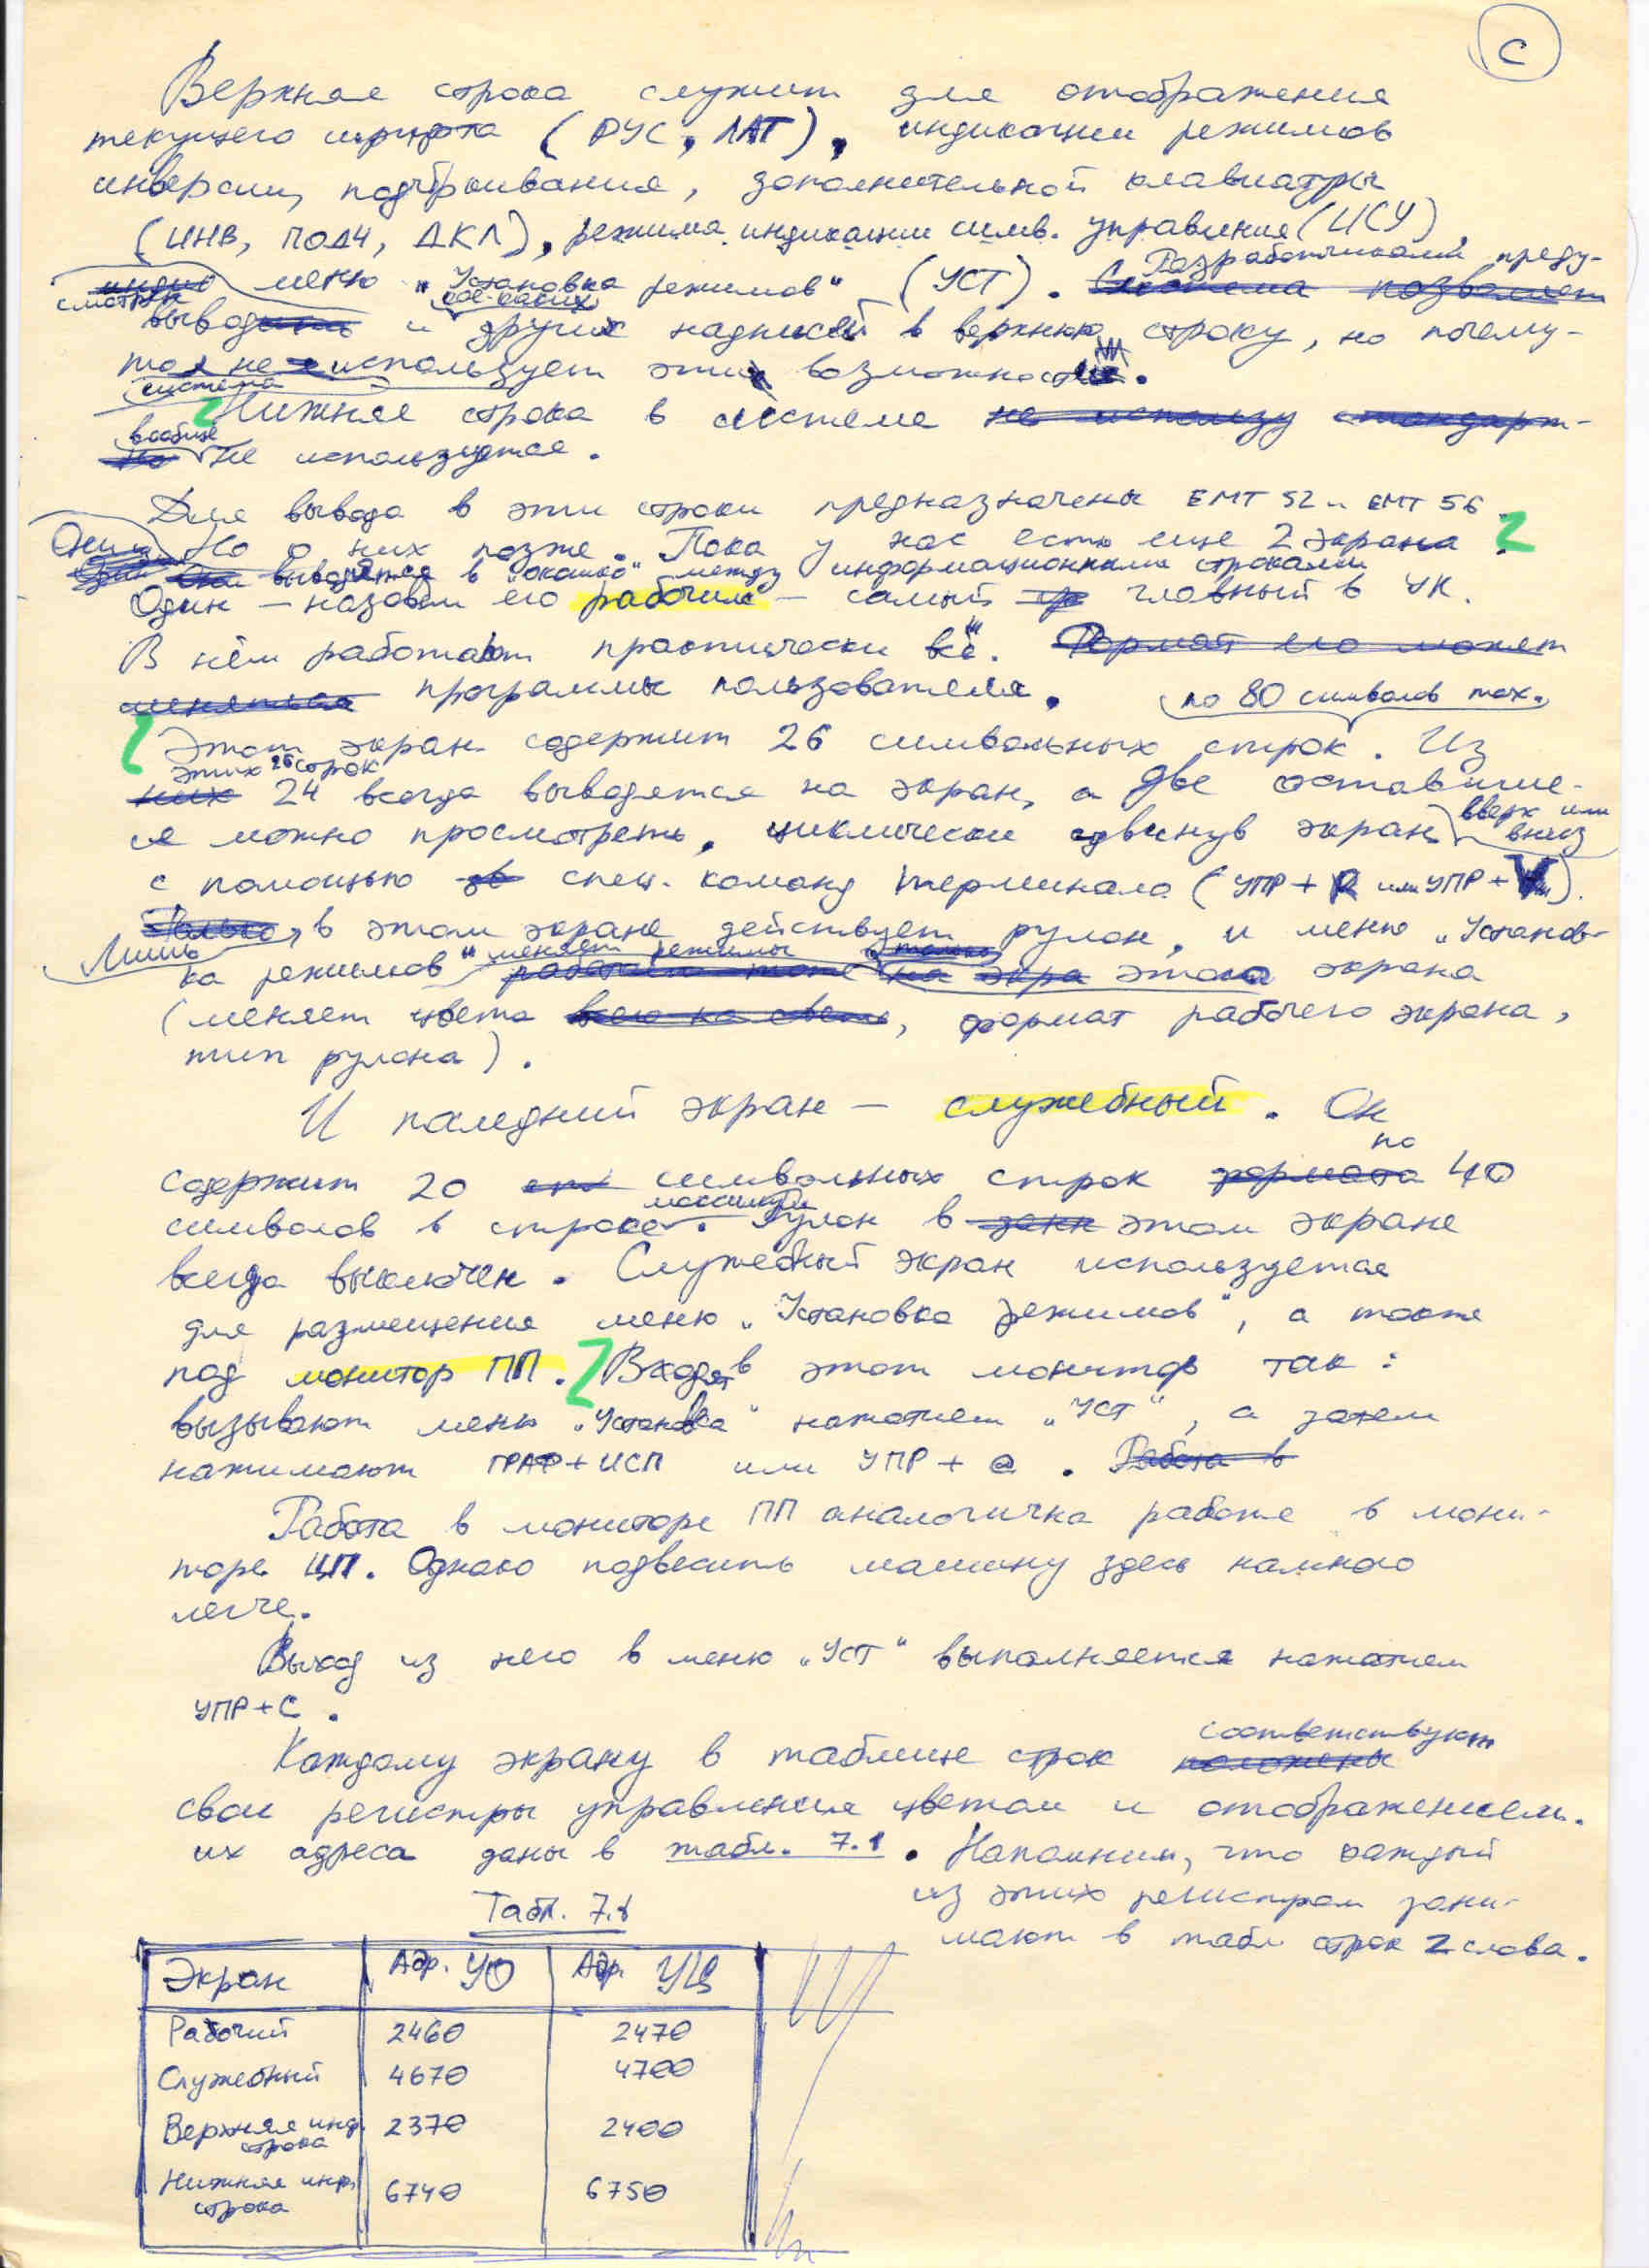 С
Верхняя строка служит для отображения
текущего шрифта (РУС, ЛАТ), индикации режимов
инверсии, подчёркивания, дополнительной клавиатуры
(ИНВ, ПОДЧ, ДКЛ), режима индикации симв. управления (ИСУ),
меню „Установка режимов" (УСТ). Разработчиками преду-
смотрен вывод и кое-каких других надписей в верхнюю строку, но почему-
то система не использует эти возможности.
Нижняя строка в системе
вообще не используется.
Для вывода в эти строки предназначены EMT 52 и EMT 56.
Но о них позже. Пока у нас есть еще 2 экрана.
Они выводятся в "окошко" между информационными строками
Один — назовём его рабочим — самый главный в УК.
В нём работают практически все
программы пользователя.
Этот экран содержит 26 символьных строк по 80 символов max. Из
этих 26 строк 24 всегда выводятся на экран, а две оставшие-
ся можно просмотреть, циклически сдвинув экран вверх или вниз
с помощью спец. команд терминала (УПР + R или УПР + V).
Лишь в этом экране действует рулон, и меню „Установ-
ка режимов" меняет режимы только этого экрана
(меняет цвета, формат рабочего экрана,
тип рулона).
И последний экран — служебный. Он
содержит 20 символьных строк по 40
символов в строке максимум. Рулон в этом экране
всегда выключен. Служебный экран используется
для размещения меню „Установка режимов", а также
под монитор ПП. Входят в этот монитор так:
вызывают меню „Установка" нажатием „УСТ", а затем
нажимают ГРАФ + ИСП или УПР + @.
Работа в мониторе ПП аналогична работе в мони-
торе ЦП. Однако подвесить машину здесь намного
легче.
Выход из него в меню „УСТ" выполняется нажатием
УПР + С.
Каждому экрану в таблице строк соответствуют
свои регистры управления цветом и отображением.
их адреса даны в табл. 7.1. Напомним, что каждый
из этих регистром зани-
мают в табл строк 2 слова.
Табл. 7.1
Экран Адр. УО Адр. УЦ
Рабочий 2460 2470
Служебный 4670 4700
Верхняя инф. строка 2370 2400
Нижняя инф. строка 6740 6750